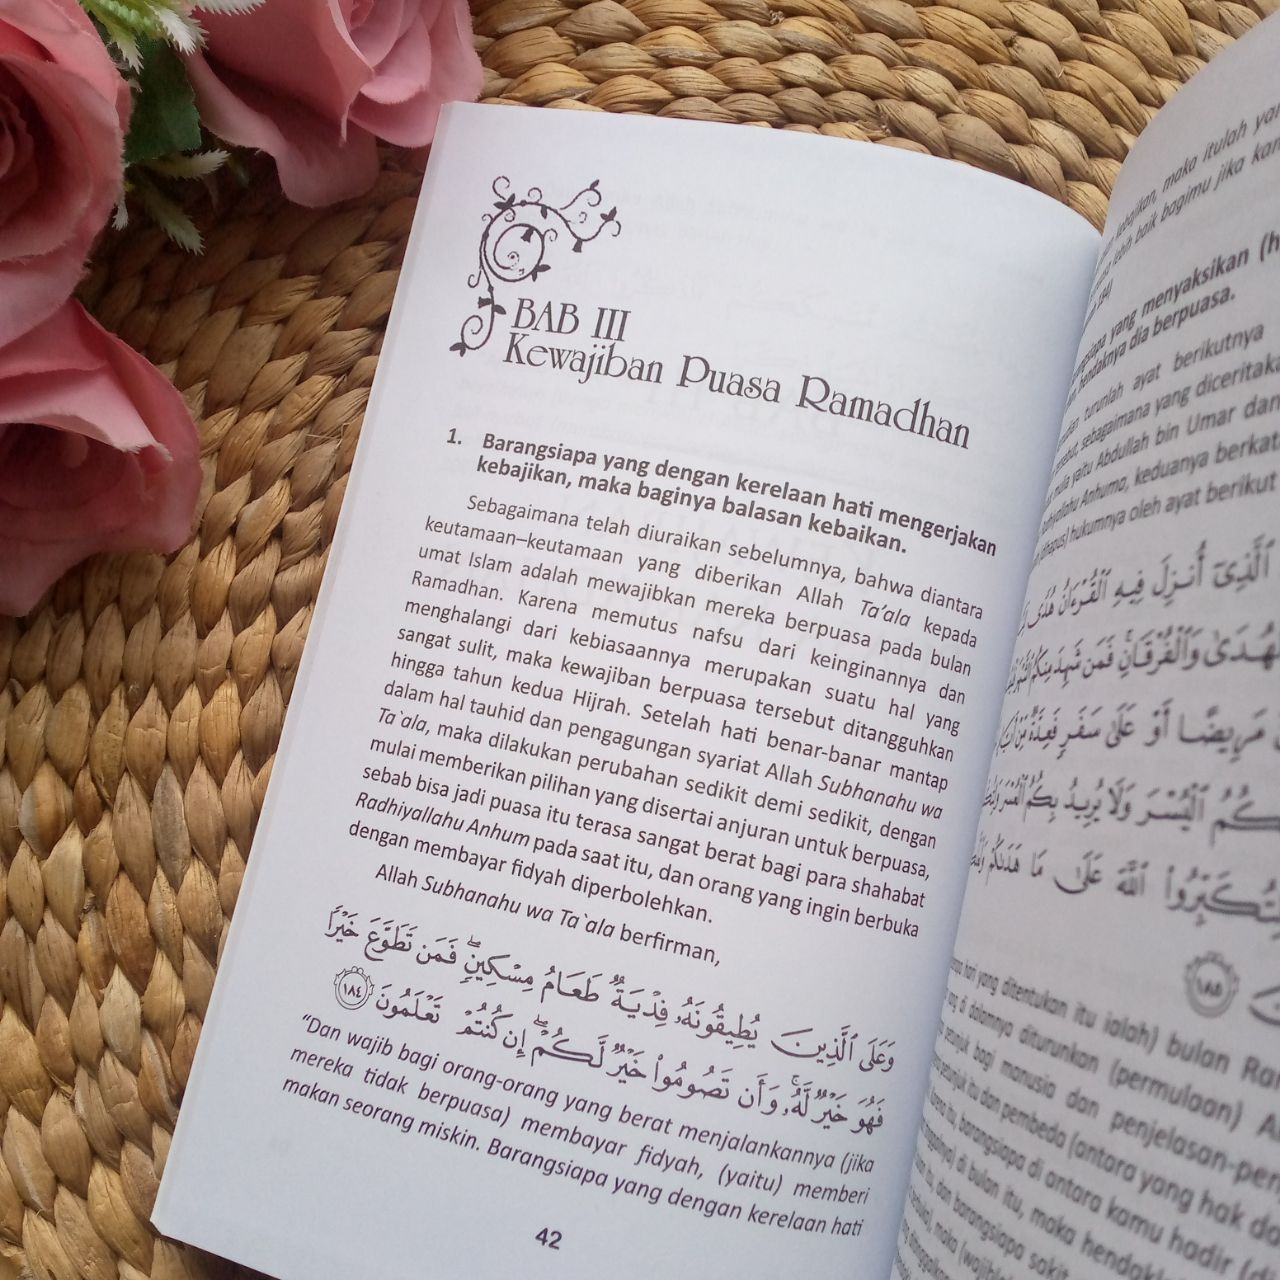 BAB III
Kewajiban Puasa Ramadhan
1. Barangsiapa yang dengan kerelaan hati mengerjakan
kebajikan, maka baginya balasan kebaikan.
Sebagaimana telah diuraikan sebelumnya, bahwa diantara
keutamaan–keutamaan yang diberikan Allah Ta’ala kepada
umat Islam adalah mewajibkan mereka berpuasa pada bulan
Ramadhan. Karena memutus nafsu dari keinginannya dan
menghalangi dari kebiasaannya merupakan suatu hal yang
sangat sulit, maka kewajiban berpuasa tersebut ditangguhkan
hingga tahun kedua Hijrah. Setelah hati benar-banar mantap
dalam hal tauhid dan pengagungan syariat Allah Subhanahu wa
Ta`ala, maka dilakukan perubahan sedikit demi sedikit, dengan
mulai memberikan pilihan yang disertai anjuran untuk berpuasa,
sebab bisa jadi puasa itu terasa sangat berat bagi para shahabat
Radhiyallahu Anhum pada saat itu, dan orang yang ingin berbuka
dengan membayar fidyah diperbolehkan.
Allah Subhanahu wa Ta`ala berfirman,
وَعَلَى ٱلَّذِينَ يُطِيقُونَهُۥ فِدْيَةٌ طَعَامُ مِسْكِينٍۖ فَمَن تَطَوَّعَ خَيْرًا
فَهُوَ خَيْرٌ لَّهُۥۚ وَأَن تَصُومُوا۟ خَيْرٌ لَّكُمْۖ إِن كُنتُمْ تَعْلَمُونَ ١٨٤
“Dan wajib bagi orang-orang yang berat menjalankannya (jika
mereka tidak berpuasa) membayar fidyah, (yaitu) memberi
makan seorang miskin. Barangsiapa yang dengan kerelaan hati
42
maka itulah
lebih baik bagimu jika
yang menyaksikan
hendaknya dia berpuasa.
turunlah ayat berikutnya
sebagaimana yang diceritakan
yaitu Abdullah bin Umar dan
Anhuma, keduanya berkata
hukumnya oleh ayat berikut
ٱلَّذِىٓ أُنزِلَ فِيهِ ٱلْقُرْءَانُ هُدًى
وَٱلْفُرْقَانِۚ فَمَن شَهِدَ مِنكُمُ
مَرِيضًا أَوْ عَلَىٰ سَفَرٍ فَعِدَّةٌ مِّنْ
ٱلْيُسْرَ وَلَا يُرِيدُ بِكُمُ ٱلْعُسْرَ
ٱللَّهَ عَلَىٰ مَا هَدَىٰكُمْ
١٨٥
hari yang ditentukan itu ialah) bulan
di dalamnya diturunkan (permulaan)
bagi manusia dan
itu dan pembeda (antara yang hak
barangsiapa di antara kamu hadir
di bulan itu, maka
dan barangsiapa sakit